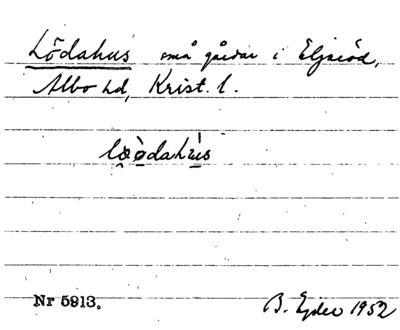 Lödahus små gårdar i Eljaröd,
Albo hd, Krist. l.
Nr 5913.
B. Ejder 1952